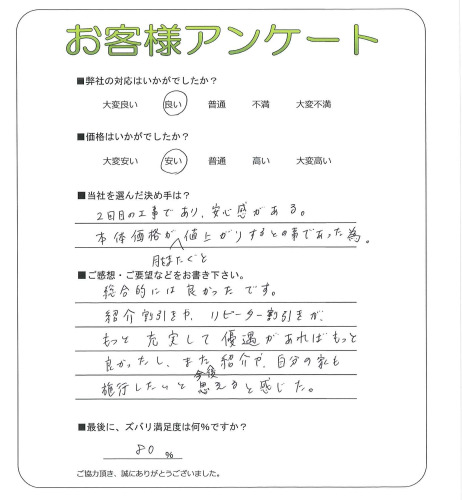 お客様アンケート
■弊社の対応はいかがでしたか？
大変良い 良い 普通 不満 大変不満
■価格はいかがでしたか？
大変安い 安い 普通 高い 大変高い
■当社を選んだ決め手は？
2回目の工事であり、安心感がある。
本体価格が、値上がりするとの事であった為。
月をまたぐと
■ご感想・ご要望などをお書き下さい。
総合的には良かったです。
紹介割引きや、リピーター割引きが、
もっと充実して優遇があればもっと
良かったし、また紹介や、自分の家も
今後
施行したいと思えると感じた。
■最後に、ズバリ満足度は何％ですか？
80 %
ご協力頂き、誠にありがとうございました。